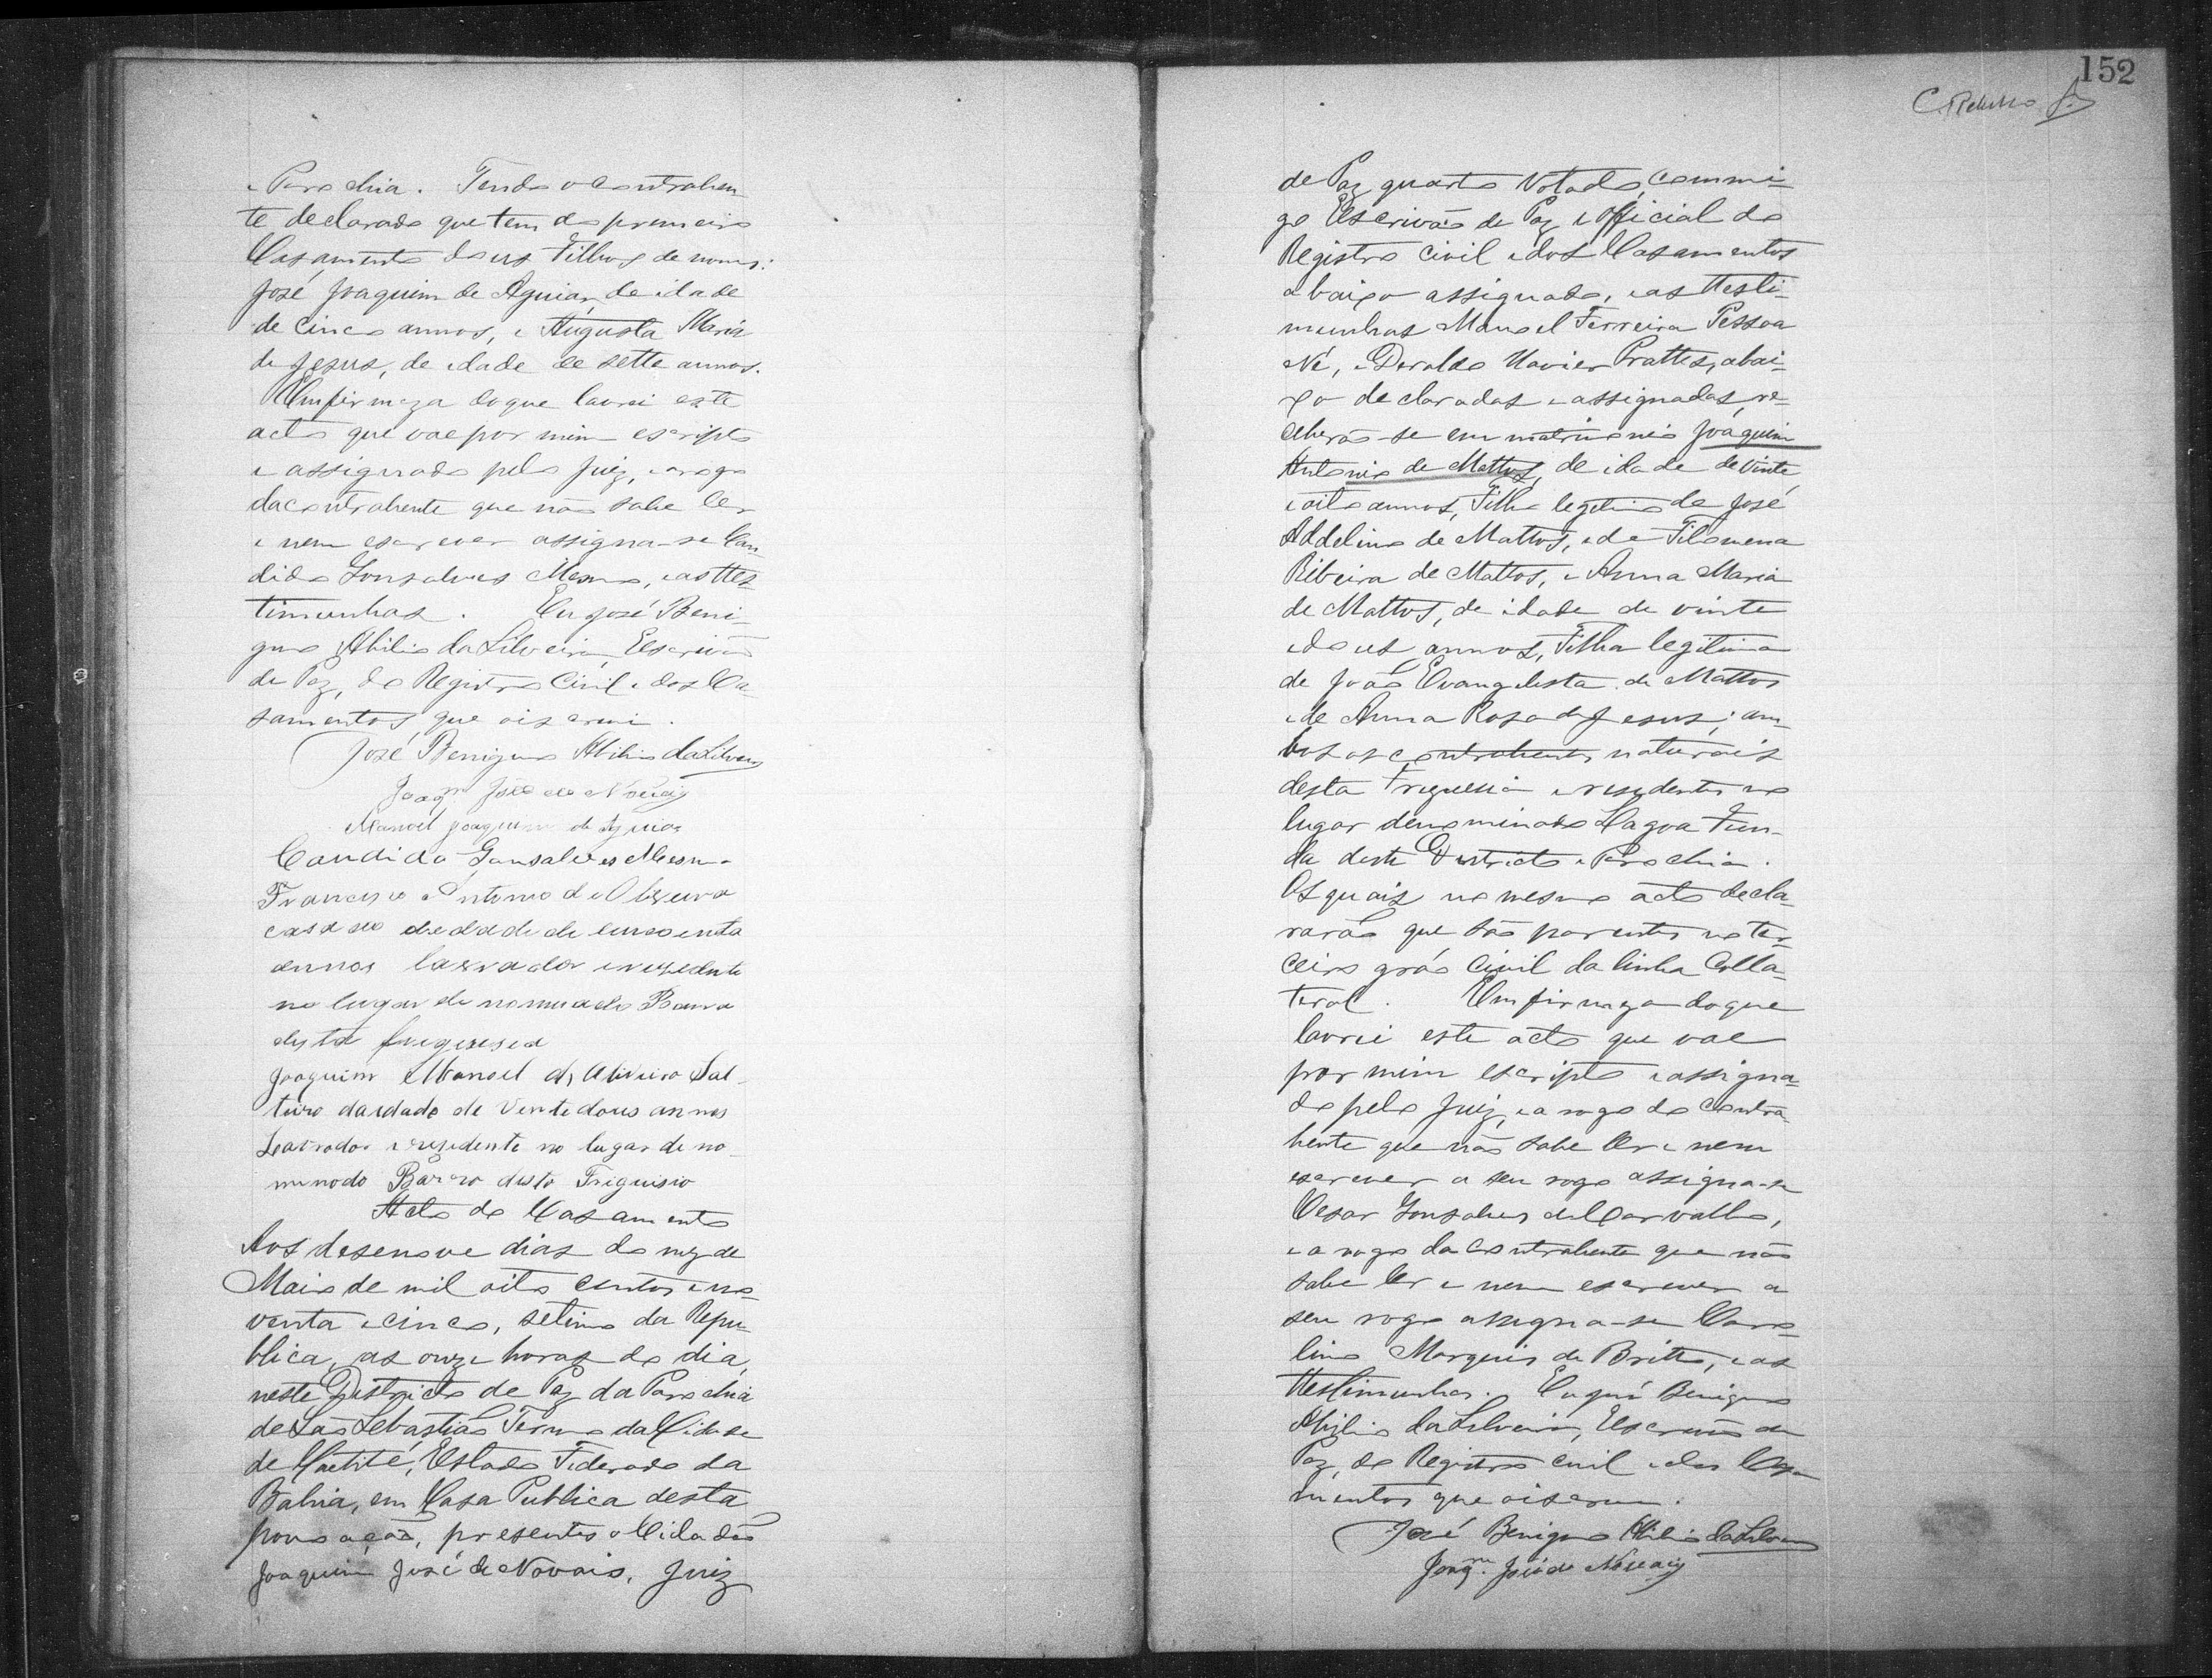 e Parochia. Tendo o contrahen-
te declarado que tem do premeiro
Casamento dous Filhos de nomes:
José Joaquim de Aguiar, de idade
de cinco annos, e Augusta Maria
de Jesus, de idade de sette annos.
Em firmeza do que lavrei este
acto que vae por mim escripto
e assignado pelo Juiz, e a rogo
da contrahente que não sabe ler
e nem escrever assigna-se Can-
dido Gonsalves, e as ttes-
timunhas. Eu José Beni-
gno Abilio da Silveira, Escrivão
de Paz, do Registro Civil e dos Ca-
samentos, que o iscrevi.
José Benigno Abilio da Silveira
Joaqm José de Novais
Manoel Joaquim de Aguiar
Candido Gonsalves
Francisco Antonio de Oliveira
casado de edade de cincoenta
annos lavrador e rezedente
no lugar de nominado Barra
desta freguesia
Joaquim Manoel de Oliveira Sal-
tero da idade de Vente dous annos
Lavrador e resedente no lugar de no-
minado Barra desta Friguisia
Acto de Casamento
Aos desenove dias do mez de
Maio de mil oito centos e no-
venta e cinco, setimo da Repu-
blica, as onze horas do dia,
neste Districto de Paz da Parochia
de São Sebastião Termo da Cidade
de Caetité, Estado Federado da
Bahia, em Casa Publica desta
povoação, presentes o Cidadão
Joaquim José de Novais, Juiz
152
de Paz quarto Votado, commi-
go Escrivão de Paz e official do
Registro Civil e dos Casamentos
abaixo assignado, e as ttesti-
munhas Manoel Ferreira Pessoa
Né, e Deraldo Xavier Prattes, abai-
xo declaradas e assignadas, re-
ceberão-se em matrimonio Joaquim
Antonio de Mattos, de idade de vinte
e oito annos, Filho legitimo de José
Addelino de Mattos, e de Filomena
Ribeira de Mattos, e Anna Maria
de Mattos, de idade de vinte
e dous annos, Filha legitima
de João Evangelista de Mattos
e de Anna Rosa de Jesus; am-
bos os contrahentes naturais
desta Freguesia e residentes no
lugar denominado Lagoa Fun-
da deste Districto e Parochia.
Os quais no mesmo acto decla-
rarão que são parentes no ter-
ceiro gráo Civil da linha Colla-
teral. Em firmeza do que
lavrei este acto que vae
por mim escripto e assigna-
do pelo Juiz, e a rogo do contra-
hente que não sabe ler e nem
escrever a seu rogo assigna-se
Cesar Gonsalves de Carvalho,
e a rogo da contrahente que não
sabe ler e nem escrever a
seu rogo assigna-se Caro-
lino Marques de Britto, e as
ttestimunhas. Eu José Benigno
Abilio da Silveira, Escrivão de
Paz, do Registro Civil e dos Casa-
mentos que o iscrevi.
José Benigno Abilio da Silveira
Joaqm. José de Novais